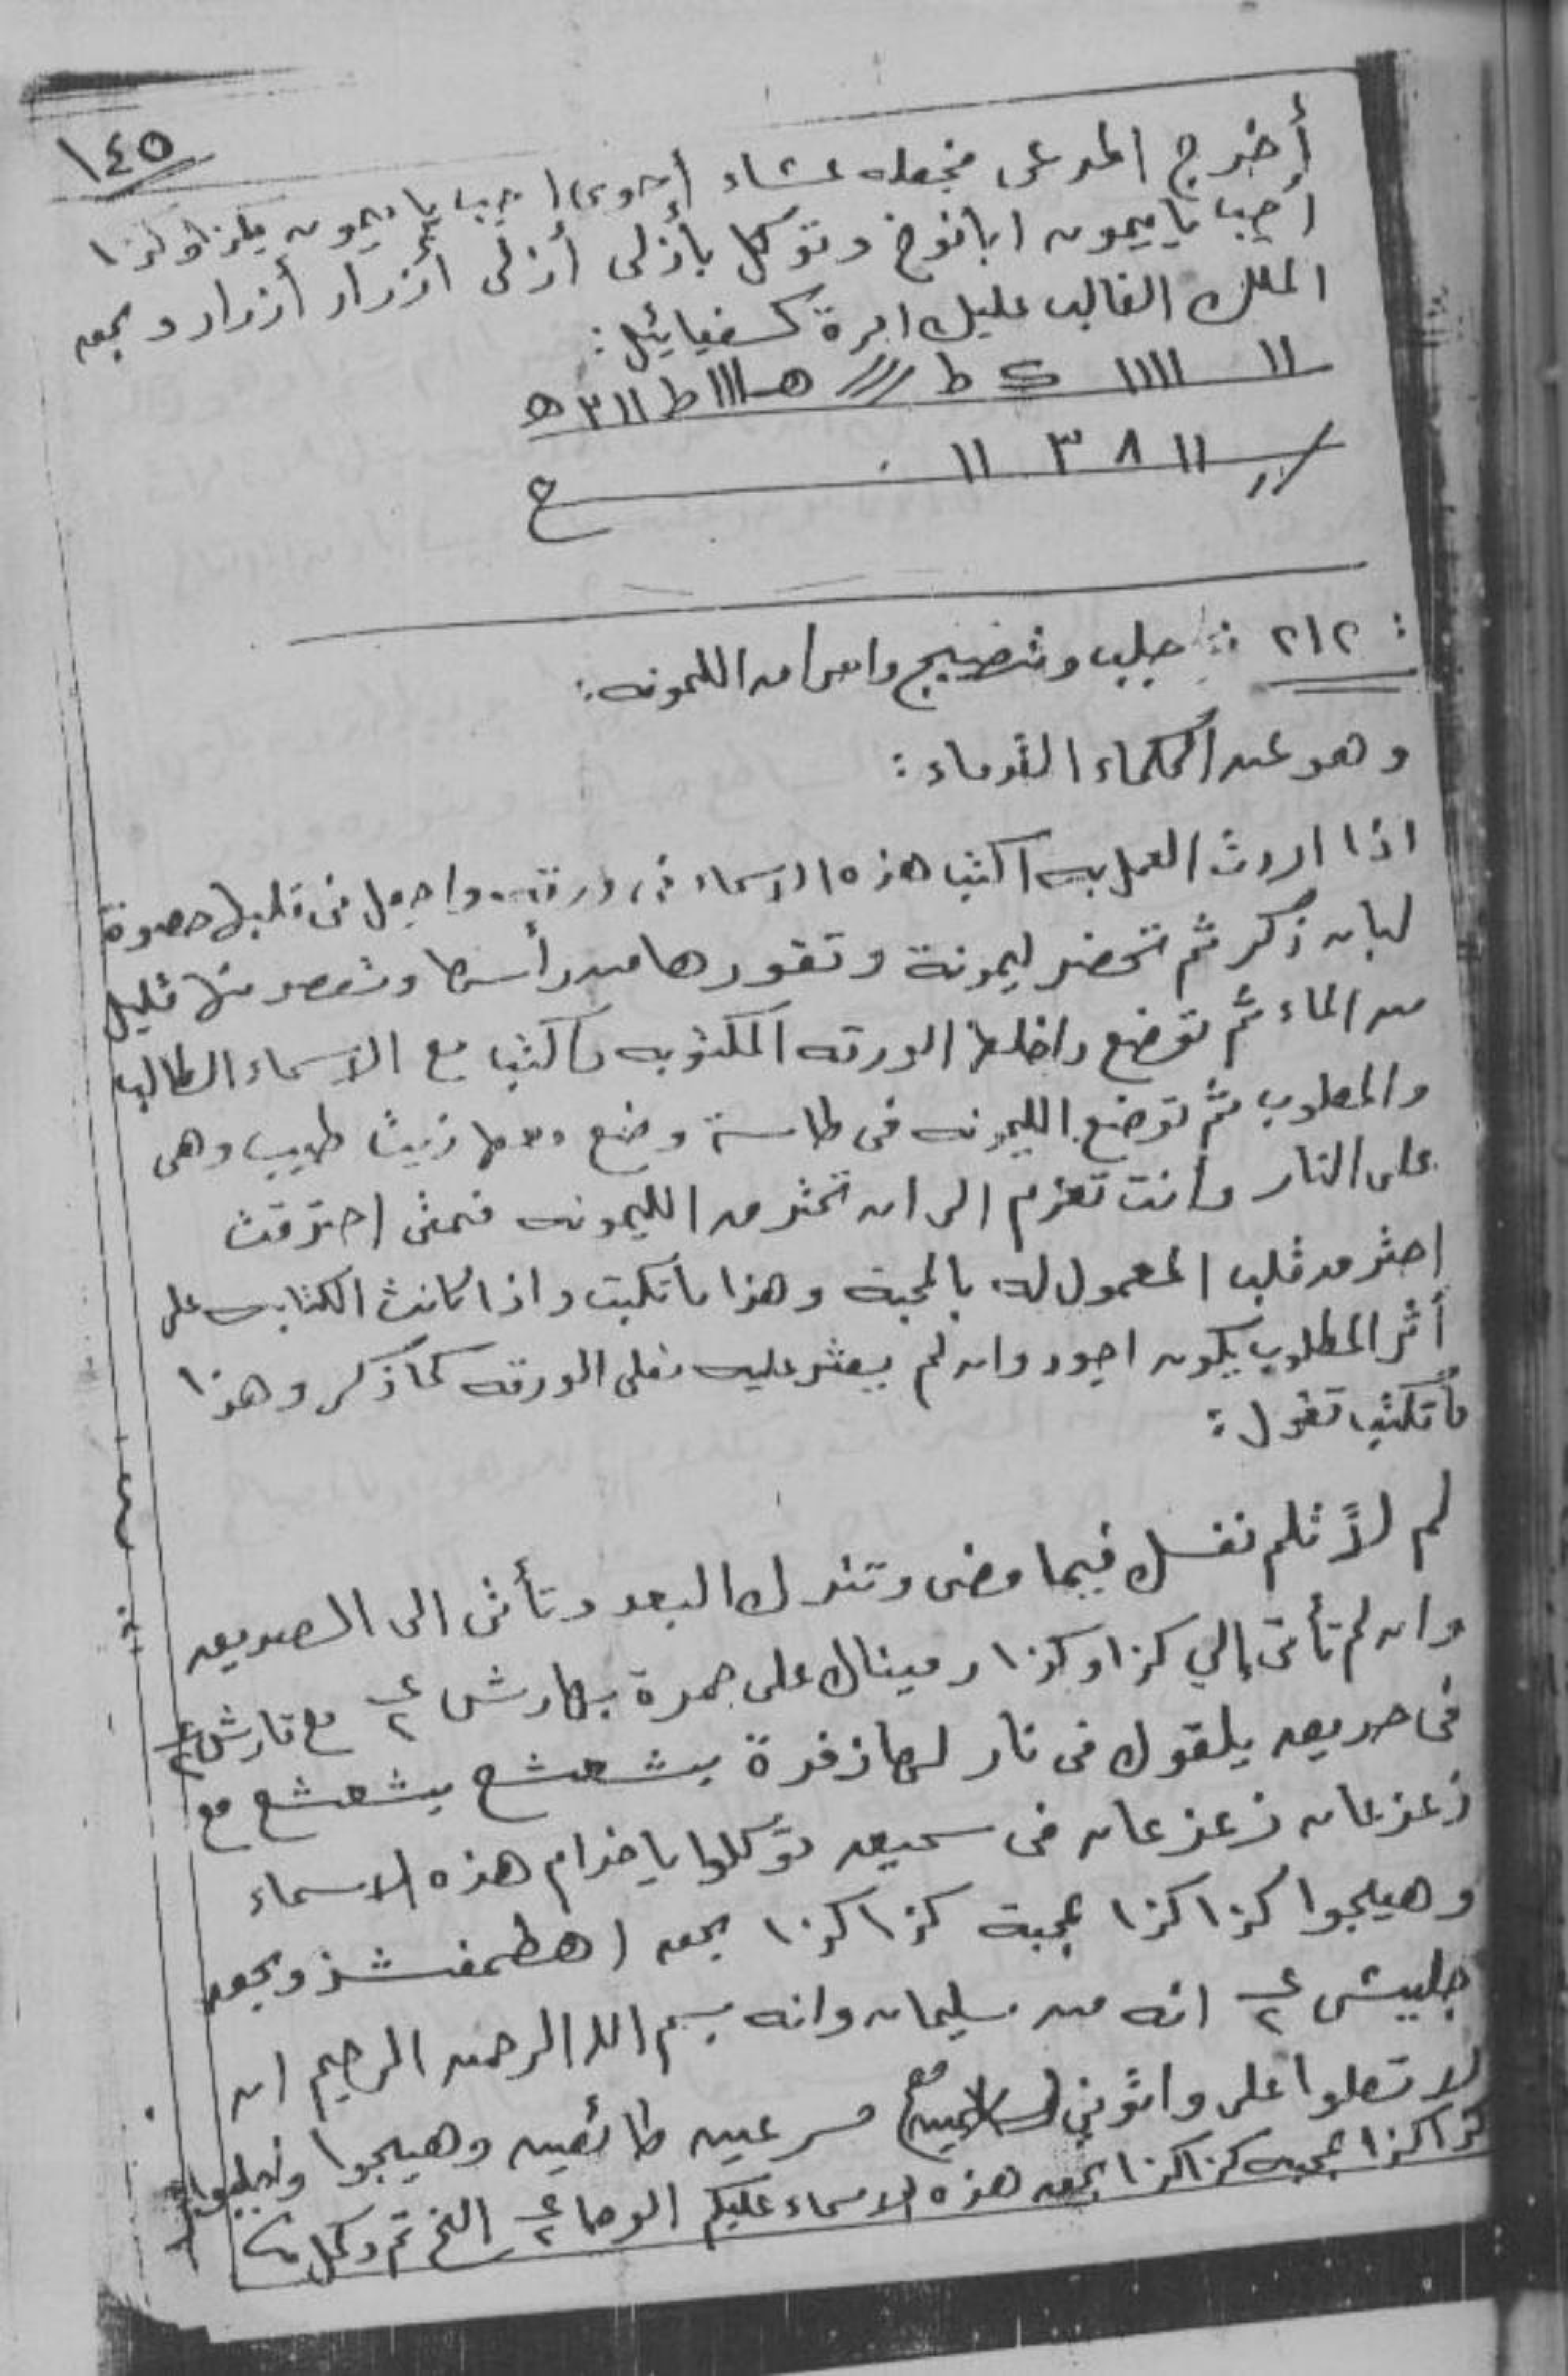 ١٤٥
أخرج المرعى فجعله غشاء أحوى اجب يا ميمون بكذا وكذا
أجب يا ميمون ابانوخ وتوكل بأزلى أزلى أزرار أزرار وبحق
الملك الغالب عليك امره كسفيائيل :
١١ ١١١١ ك ط /// ه ١١١ ط ١١ ٣ ه
// ١١ ٨ ٣ ١١ ح
: ٢١٢ : جلب وتهييج واصرامه الليمونه :
وهو عند الحكماء القدماء :
اذا اردت العمل به اكتب هذه الاسماء فى ورقه واجعل فى قلبها حصوة
لبان ذكر ثم تحضر ليمونة وتقورها من رأسها وتعصر منها قليل
من الماء ثم توضع داخلها الورقه المكتوبه واكتب مع الاسماء الطالب
والمطلوب ثم توضع الليمونه فى طاسة وضع معها زيت طيب وهى
على النار وانت تعزم الى ان تحترق الليمونه فمتى احترقت
احترق قلب المعمول له بالمحبة وهذا ما تكتب واذا كانت الكتابه على
أثر المطلوب يكون اجود وان لم يعثر عليه فعلى الورقه كما ذكر وهذا
ما تكتب تقول :
لم لا تلم نفسك فيما مضى وتترك البعد وتأتى الى الصديق
وان لم تأتى إلي كذا وكذا رميناك على جمرة بهارش ٢ مع قارش ٢
فى حريق يلقوك فى نار لها زفرة بشعشع بشعشع مع
زعزعان زعزعان فى سحيق توكلوا يا خدام هذه الاسماء
وهيجوا كذا كذا بمحبة كذا كذا بحق اهطمفشذ وبحق
جليش ٢ انه من سليمان وانه بسم الله الرحمن الرحيم ان
لا تعلوا على واتوني مسرعين طائعين وهيجوا واجلبوا
كذا كذا بمحبه كذا كذا بحق هذه الاسماء عليكم الوحا ٢ الخ تم وكمل